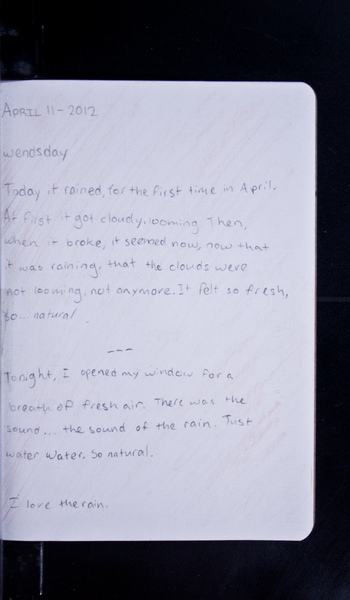 APRIL 11-2012
wendsday
Today it rained, for the first time in April.
At first it got cloudy, looming. Then,
when it broke, it seemed now, now that
it was raining, that the clouds were
not looming, not anymore. It felt so fresh,
so... natural.
---
Tonight, I opened my window for a
breath of fresh air. There was the
sound... the sound of the rain. Just
water water. So natural.
I love the rain.